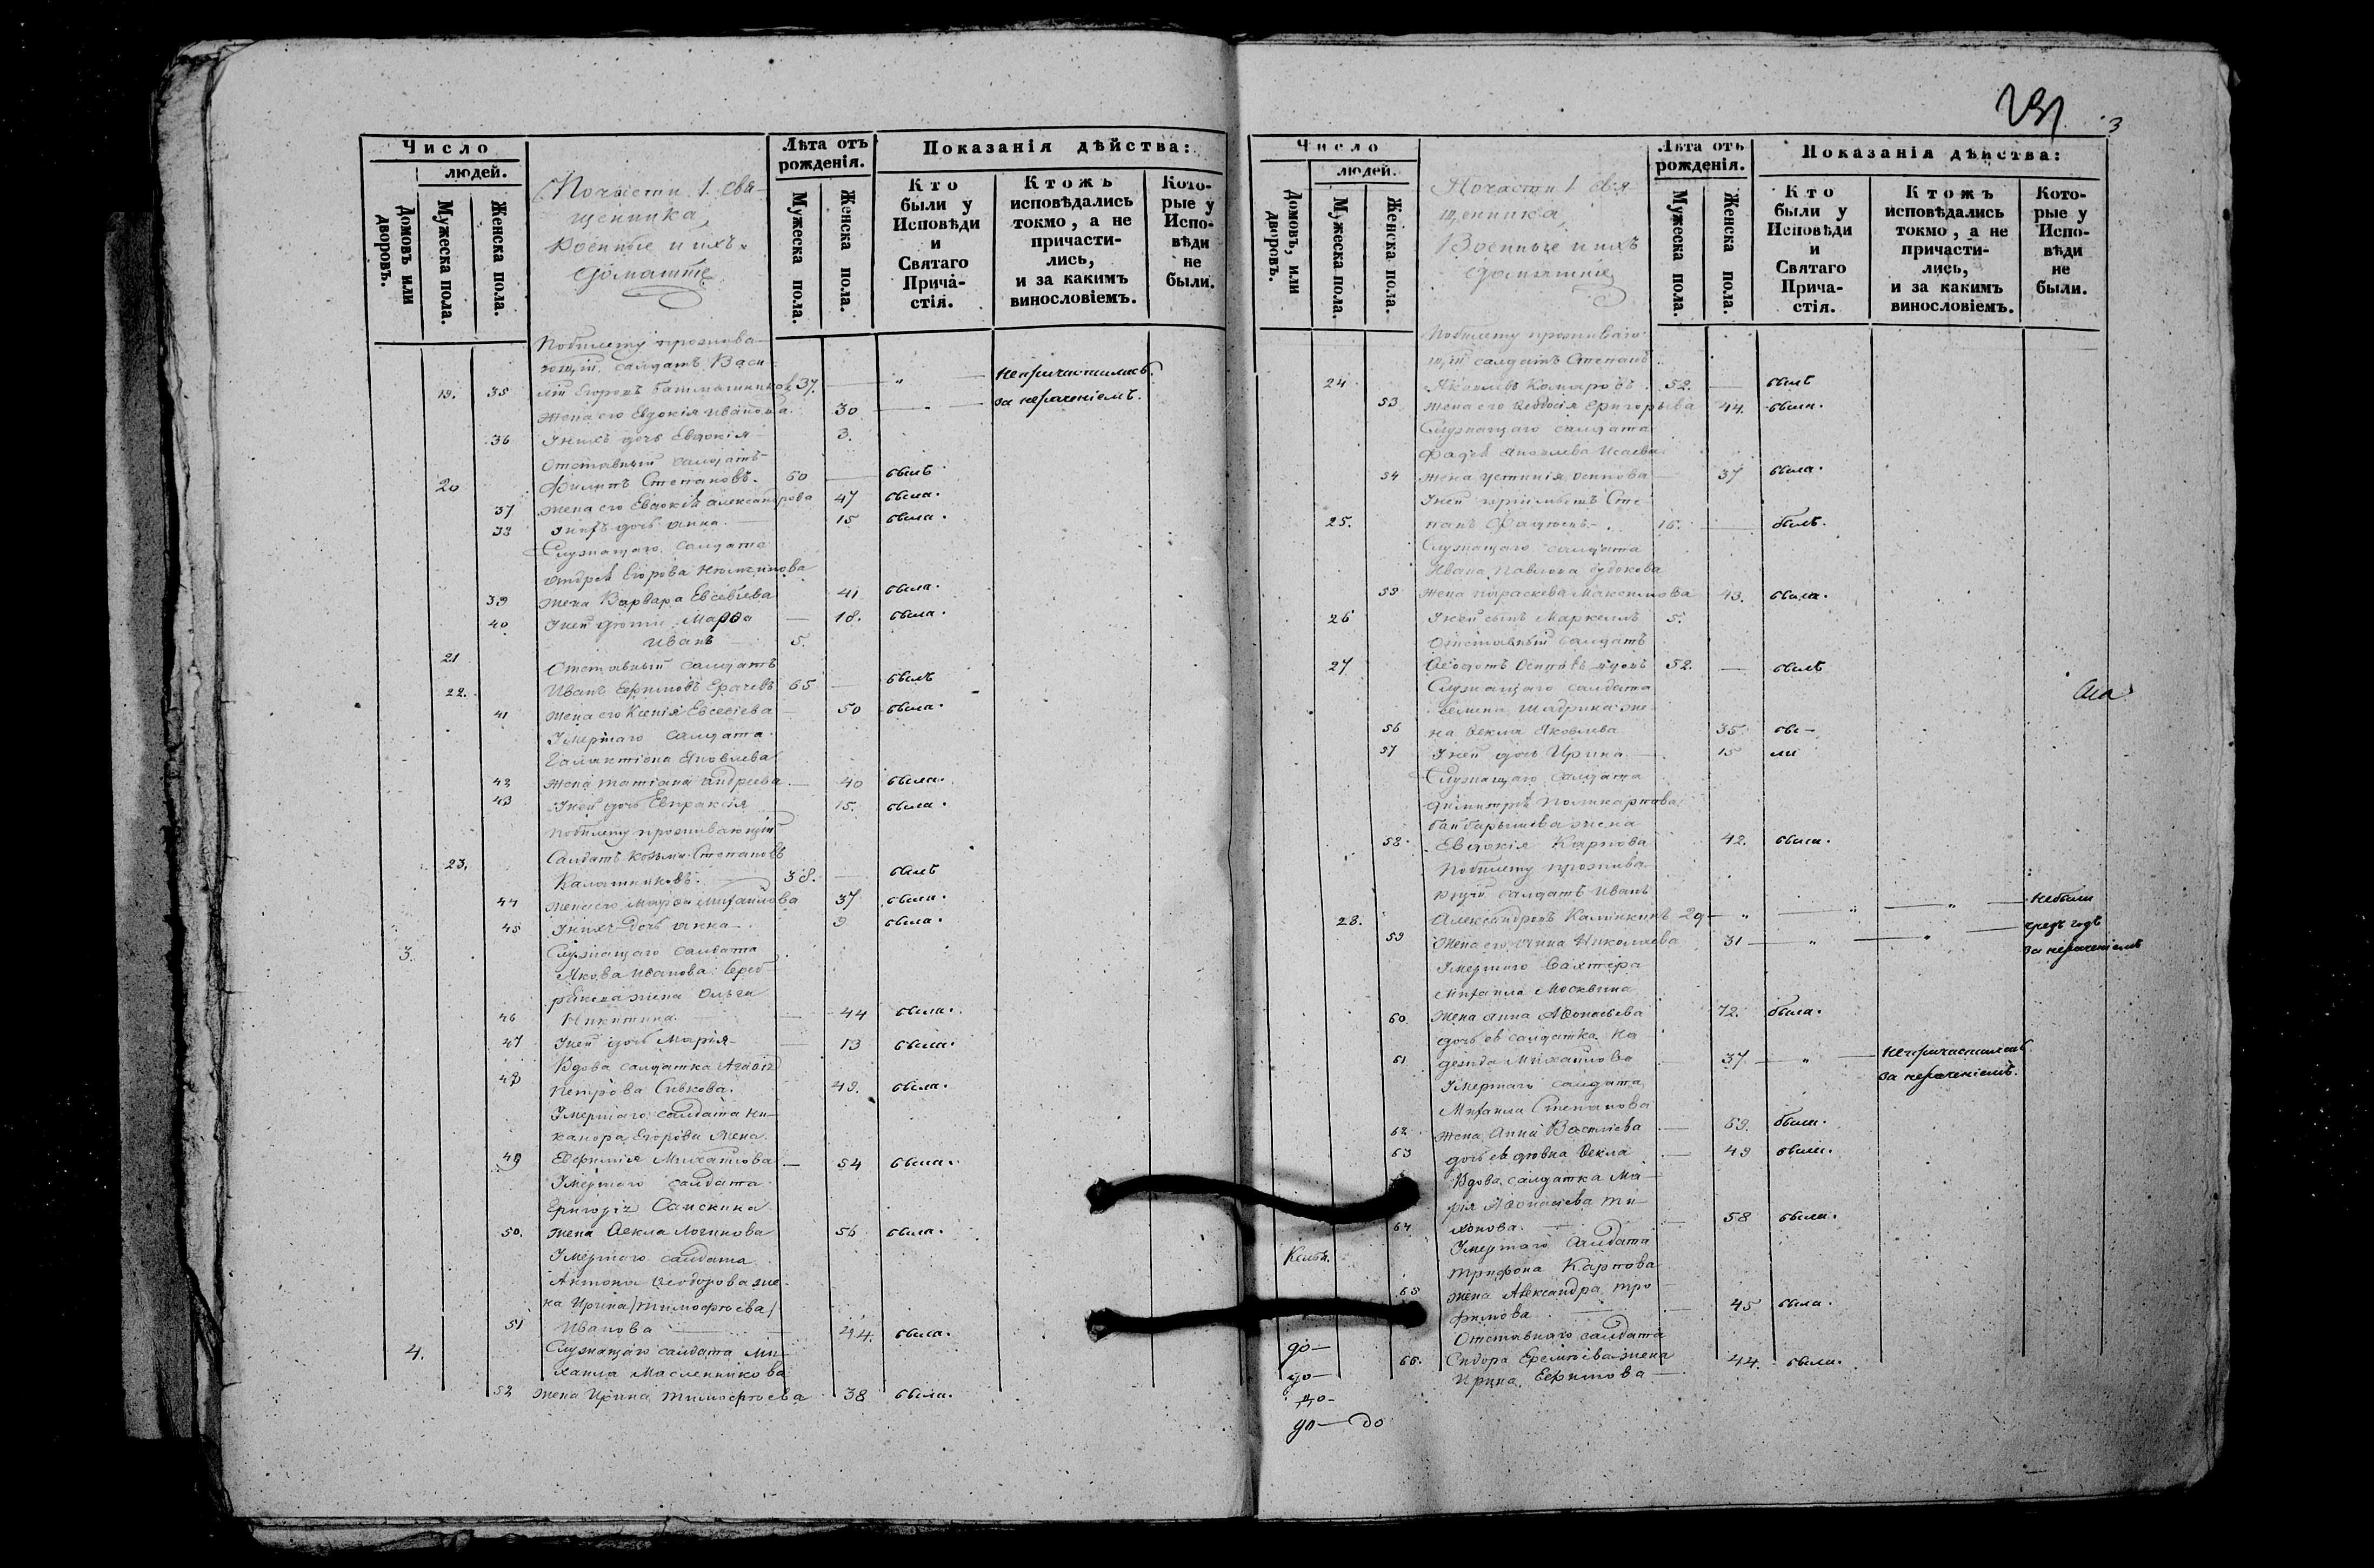 Число
людей.
Домовъ или дворовъ.
Мужеска пола.
Женска пола.
По части 1. свя-
щенника
Военные и ихъ
домашніе
Лѣта отъ
рожденія.
Мужеска пола.
Женска пола.
Показанія дѣйства:
Кто
были у
Исповѣди
и
Святаго
Прича-
стія.
Ктожъ
исповѣдались
токмо, а не
причасти-
лись,
и за какимъ
винословіемъ.
Кото-
рые у
Испо-
вѣди
не
были.
Побилету прожива-
ющій салдатъ Васи-
19. 35 лій Егоровъ Башмашниковъ 37. — „ — непричастились
жена его Евдокія Иванова. 30 — „ — за нераченіемъ.
36 У нихъ дочь Евдокія 3.
Отставный салдатъ
20 Филипъ Степановъ. 60 — былъ
37 жена его Евдокія Александрова 47 была.
38 У нихъ дочь Анна 15 была.
Служащаго салдата
Андрея Егорова
39 жена Варвара Евсевіева 41 была.
40 У ней дѣти Марѳа — 18. была.
21 Иванъ 5.
Отставный салдатъ
22. Иванъ Ефимовъ 65 — былъ
41 жена его Ксенія Евсевіева — 50 была.
Умершаго салдата
Галактіона Яковлева
42 жена Татіана Андреева — 40 была.
43 У ней дочь Евпраксія 15. была.
побилету проживающій
23. Салдатъ Козьма Степановъ
Калашниковъ. 38. — былъ
44 жена его Марѳа Михайлова 37 была.
45 У нихъ дочь Анна 9 была.
3. Служащаго салдата
Якова Иванова
жена Ольга
46 Никитина — 44 была.
47 У ней дочь Марія — 13 была.
Вдова салдатка Агаѳія
48 Петрова Сивкова. 49. была.
Умершаго салдата Ни-
канора Егорова жена
49 Евфимія Михайлова — 54 была.
Умершаго салдата
Григорія
50. жена Ѳекла Логинова 56 была.
Умершаго салдата
Антона Ѳеодорова же-
на Ирина (Тимофѣева)
51 Иванова 44. была.
4. Служащаго салдата Ми-
хаила Масленникова
52 жена Ирина Тимофѣева 38 была.
3
Число
людей.
Домовъ, или дворовъ.
Мужеска пола.
Женска пола.
По части 1 свя-
щенника
Военные и ихъ
домашніе
Лѣта отъ
рожденія.
Мужеска пола.
Женска пола.
Показанія дѣйства:
Кто
были у
Исповѣди
и
Святаго
Прича-
стія.
Ктожъ
исповѣдались
токмо, а не
причасти-
лись,
и за какимъ
винословіемъ.
Кото-
рые у
Испо-
вѣди
не
были.
Побилету проживаю-
щій салдатъ Степанъ
24 Яковлевъ Комаровъ 52. — былъ
53 жена его Ѳеодосія Григорьева 44. была.
Служащаго салдата
Фадѣя Яковлева Исаева
54 жена Устинія Осипова 37 была.
У ней пріимышъ Сте-
25. панъ 16. — былъ.
Служащаго салдата
Ивана Павлова Судокова
55 жена Параскева Максимова 43. была.
26 У ней сынъ Маркеллъ 5.
Отставный салдатъ
27 Ѳедотъ Осиповъ вдовъ 52. — былъ
Служащаго салдата
Шадрина же-
56 на Ѳекла Яковлева 35. бы-
57 У ней дочь Ирина — 15 ли
Служащаго салдата
Димитрія Поликарпова
Байбарышева жена
58. Евдокія Карпова 42. была.
Побилету прожива-
ющій салдатъ Иванъ
28. Александровъ Калинкинъ 29 — „ „ — „ — небыли
59 Жена его Анна Николаева 31 — „ — „ — чрезъ годъ
за нераченіемъ
Умершаго Вахтера
Михаила Москвина
60 жена Анна Аѳонасьева 72. была.
дочь ея салдатка На-
61 дежда Михайлова 37. — „ — непричастилась
за нераченіемъ.
Умершаго салдата
Михаила Степанова
62 жена Анна Васильева — 69. была.
63 дочь ея дѣвка Ѳекла — 49 была.
Вдова салдатка Ма-
рія Аѳонасьева Ти-
64. хонова. 58 была.
Умершаго салдата
Трифона Карпова
65 жена Александра Тро-
фимова 45 была.
Отставнаго салдата
66. Сидора Еремѣева жена 44. была.
Ирина Ефимова —
до—
до—
до-
до— до